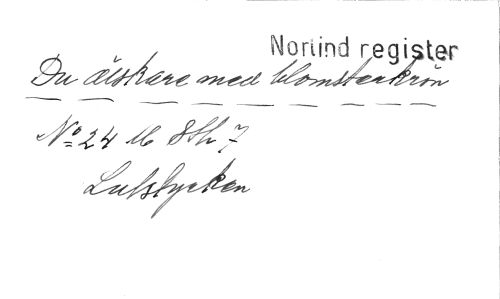 Norlind register
Du älskare med blomsterkrön
No 24 16 8th 7
Lutstycken